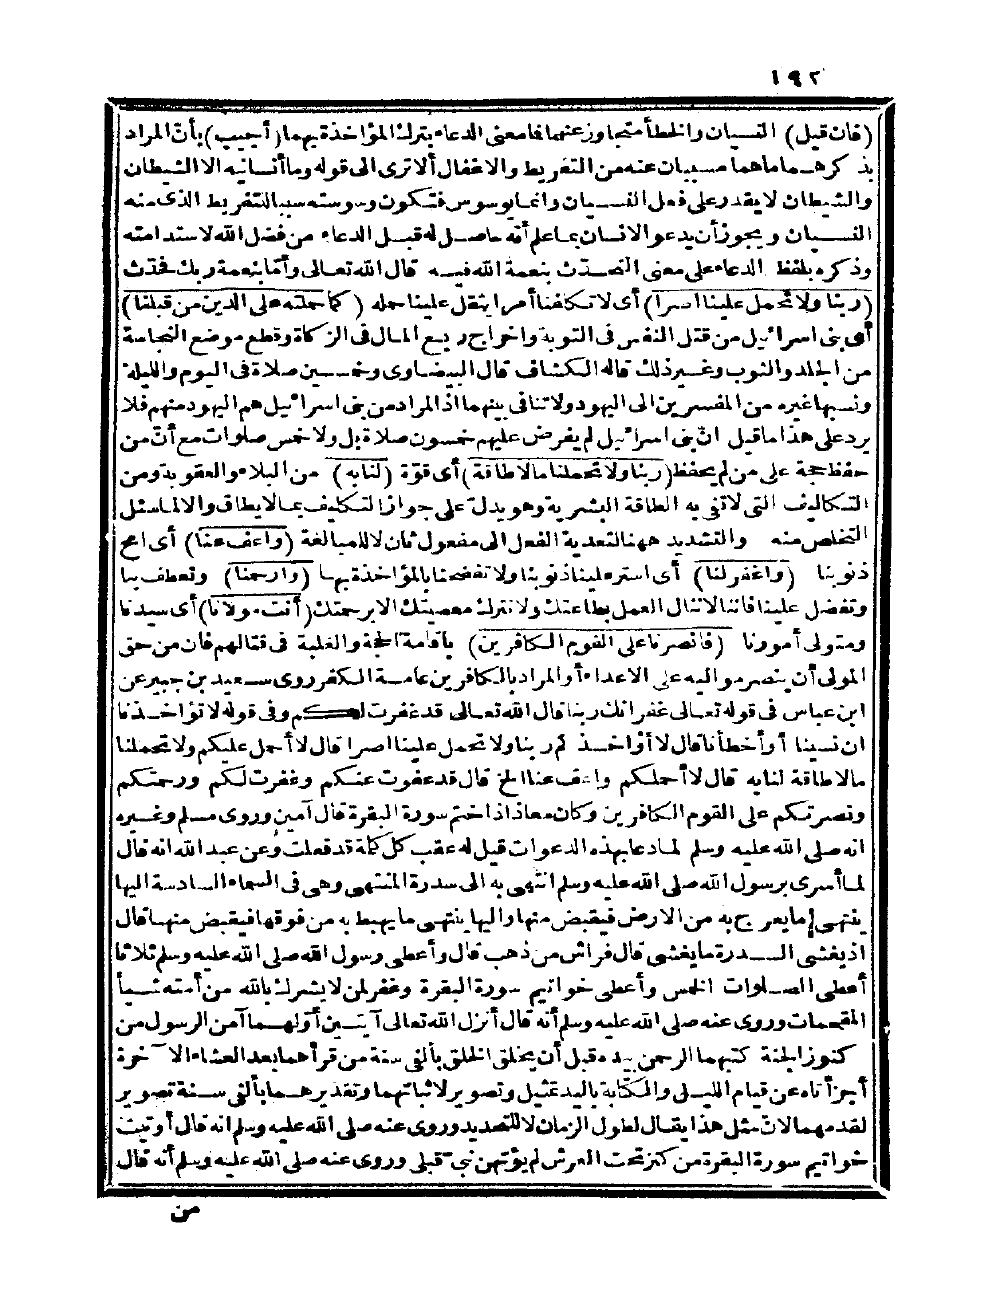 ١٩٢
(فان قيل) النسيان والخطأ متجاوز عنهما فما معنى الدعاء بترك المؤاخذة بهما (أجيب) بأن المراد
بذكرهما ما هما مسببان عنه من التفريط والاغفال ألا ترى الى قوله وما أنسانيه الا الشيطان
والشيطان لا يقدر على فعل النسيان وانما يوسوس فتكون وسوسته سببا للتفريط الذى منه
النسيان ويجوز أن يدعو الانسان بما علم أنه حاصل له قبل الدعاء من فضل الله لاستدامته
وذكره بلفظ الدعاء على معنى التحدّث بنعمة الله فيه قال الله تعالى وأمّا بنعمة ربك فحدّث
(ربنا ولا تحمل علينا اصرا) أى لا تكلفنا أمرا يثقل علينا حمله (كما حملته على الذين من قبلنا)
أى بنى اسرائيل من قتل النفس فى التوبة واخراج ربع المال فى الزكاة وقطع موضع النجاسة
من الجلد والثوب وغير ذلك قاله الكشاف قال البيضاوى وخمسين صلاة فى اليوم والليلة
ونسبها غيره من المفسرين الى اليهود ولا تنافى بينهما اذ المراد من بنى اسرائيل هم اليهود منهم فلا
يرد على هذا ما قيل انّ بنى اسرائيل لم يفرض عليهم خمسون صلاة بل ولا خمس صلوات مع أنّ من
حفظ حجة على من لم يحفظ (ربنا ولا تحملنا ما لا طاقة) أى قوّة (لنا به) من البلاء والعقوبة ومن
التكاليف التى لا تفى به الطاقة البشرية وهو يدل على جواز التكليف بما لا يطاق والا لما سئل
التخلص منه والتشديد ههنا لتعدية الفعل الى مفعول ثان لا للمبالغة (واعف عنا) أى امح
ذنوبنا (واغفر لنا) أى استر علينا ذنوبنا ولا تفضحنا بالمؤاخذة بها (وارحمنا) وتعطف بنا
وتفضل علينا فاننا لا ننال العمل بطاعتك ولا نترك معصيتك الا برحمتك (أنت مولانا) أى سيدنا
ومتولى أمورنا (فانصرنا على القوم الكافرين) باقامة الحجة والغلبة فى قتالهم فان من حق
المولى أن ينصر مواليه على الاعداء أو المراد بالكافرين عامة الكفر روى سعيد بن جبير عن
ابن عباس فى قوله تعالى غفرانك ربنا قال الله تعالى قد غفرت لكم وفى قوله لا تؤاخذنا
ان نسينا أو أخطأنا قال لا أؤاخذكم ربنا ولا تحمل علينا اصرا قال لا أحمل عليكم ولا تحملنا
ما لا طاقة لنا به قال لا أحملكم واعف عنا الخ قال قد عفوت عنكم وغفرت لكم ورحمتكم
ونصرتكم على القوم الكافرين وكان معاذ اذا ختم سورة البقرة قال آمين وروى مسلم وغيره
انه صلى الله عليه وسلم لما دعا بهذه الدعوات قيل له عقب كل كلمة قد فعلت وعن عبد الله انه قال
لما أسرى برسول الله صلى الله عليه وسلم انتهى به الى سدرة المنتهى وهى فى السماء السادسة اليها
ينتهى ما يعرج به من الارض فيقبض منها واليها ينتهى ما يهبط به من فوقها فيقبض منها قال
اذ يغشى السدرة ما يغشى قال فراش من ذهب قال وأعطى رسول الله صلى الله عليه وسلم ثلاثا
أعطى الصلوات الخمس وأعطى خواتيم سورة البقرة وغفر لمن لا يشرك بالله من أمته شيأ
المقحمات وروى عنه صلى الله عليه وسلم أنه قال أنزل الله تعالى آيتين أوّلهما آمن الرسول من
كنوز الجنة كتبهما الرحمن بيده قبل أن يخلق الخلق بألفى سنة من قرأهما بعد العشاء الآخرة
أجزأتاه عن قيام الليل والكتابة باليد تمثيل وتصوير لاثباتهما وتقديرهما بألفى سنة تصوير
لقدمهما لانّ مثل هذا يقال لطول الزمان لا للتحديد وروى عنه صلى الله عليه وسلم انه قال أوتيت
خواتيم سورة البقرة من كنز تحت العرش لم يؤتهن نبىّ قبلى وروى عنه صلى الله عليه وسلم أنه قال
من